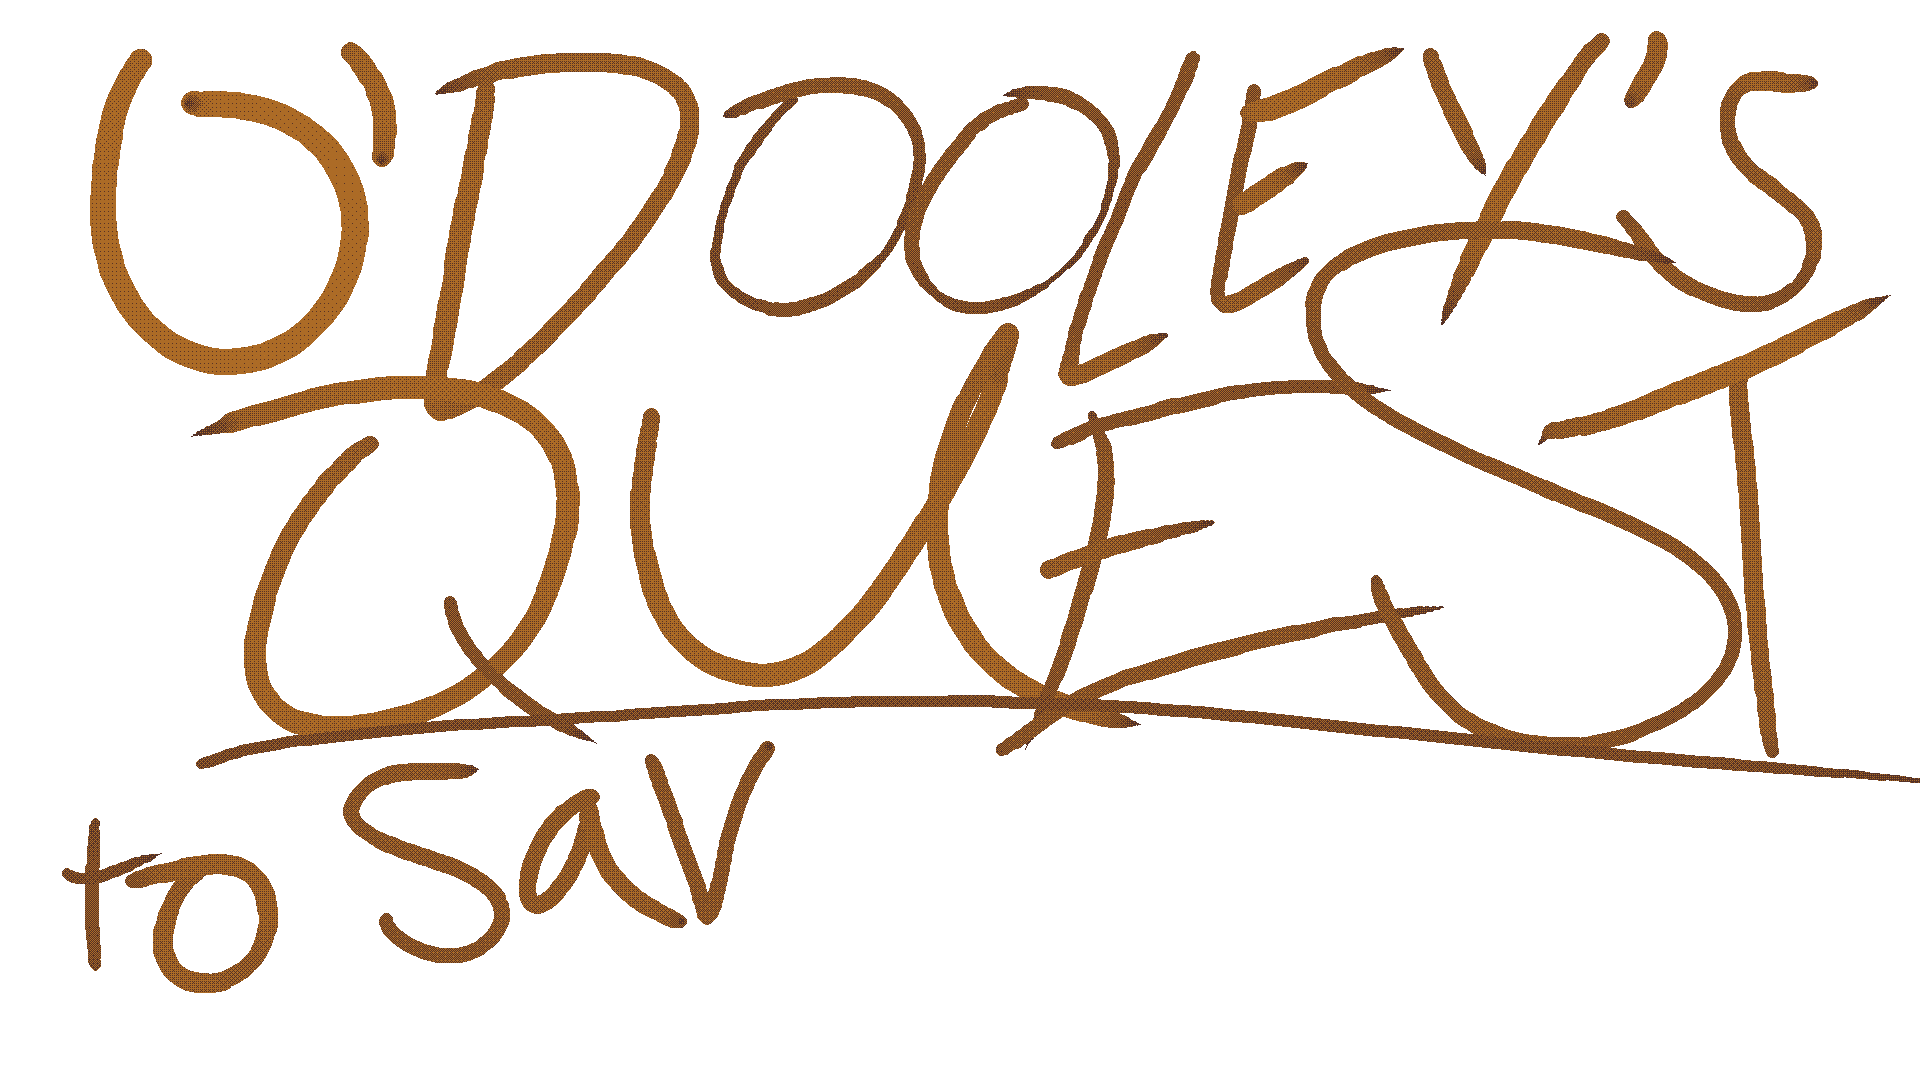 O'DOOLEY'S
QUEST
to sav